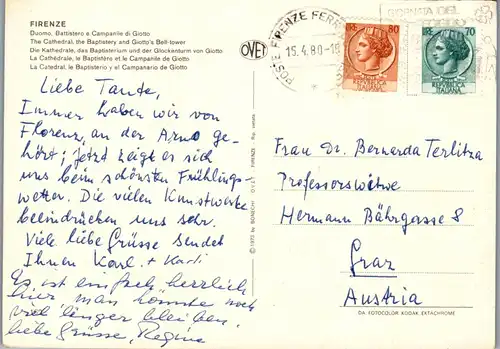 FIRENZE
Duomo, Battistero e Campanile di Giotto
The Cathedral, the Baptistery and Giotto's Bell-tower
Die Kathedrale, das Baptisterium und der Glockenturm von Giotto
La Cathédrale, le Baptistère et le Campanile de Giotto
La Catedral, le Baptisterio y el Campanario de Giotto
Liebe Tante,
Immer haben wir von
Florenz, an der Arno ge-
hört; jetzt zeigt es sich
uns beim schönsten Frühlings-
wetter. Die vielen Kunstwerke
beeindrucken uns sehr.
Viele liebe Grüsse sendet
Ihnen Karl + Karli
Es ist einfach herrlich
hier, man könnte noch
viel länger bleiben.
liebe Grüsse, Regina
OVET
© 1973 by BONECHI
POSTE FIRENZE FERR
15.4.80-18
GIORNATA DEL
80
REPUBBLICA
ITALIANA
LIRE 70
REPUBBLICA
ITALIANA
Frau Dr. Bernarda Terlitza
Professorswitwe
Hermann Bahrgasse 8
Graz
Austria
DA FOTOCOLOR KODAK EKTACHROME